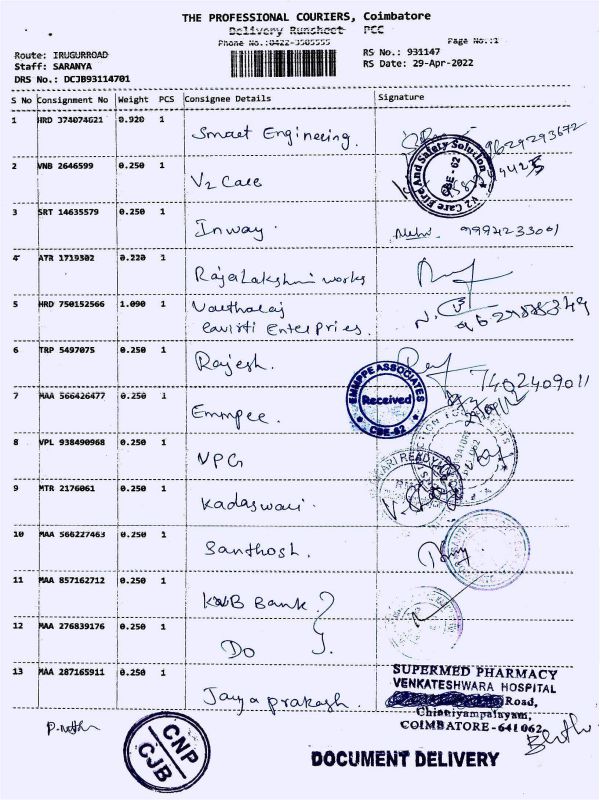 THE PROFESSIONAL COURIERS, Coimbatore
Delivery Runsheet PCC
Phone No.:0422-3505555
Page No.:1
Route: IRUGURROAD
RS No.: 931147
Staff: SARANYA
RS Date: 29-Apr-2022
DRS No.: DCJB93114701
S No Consignment No Weight PCS Consignee Details Signature
1 HRD 374074621 0.920 1 Smart Engineering. 9629293672
2 VNB 2646599 0.250 1 V2 Care
V2 Care Fire And Safety Solution
CBE-62
3 SRT 14635579 0.250 1 Inway. 9994233001
4 ATR 1719302 0.220 1 RajaLakshmi works
5 HRD 750152566 1.090 1 Vartharaj
Enterprises.
6 TRP 5497075 0.250 1 Rajesh. 7402409011
EMMPPE ASSOCIATES
Received
CBE-62
7 MAA 566426477 0.250 1 Emmpee.
8 VPL 938490968 0.250 1 VPG
9 MTR 2176061 0.250 1 Kadaswari.
10 MAA 566227463 0.250 1 Santhosh.
11 MAA 857162712 0.250 1 KVB Bank.
12 MAA 276839176 0.250 1 Do
13 MAA 287165911 0.250 1 Jayaprakash.
SUPERMED PHARMACY
VENKATESHWARA HOSPITAL
Road,
Chinniyampalayam,
COIMBATORE-641062
CNP
CJB
DOCUMENT DELIVERY